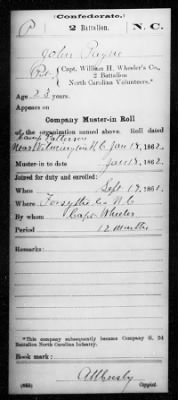 (Confederate.)
P 2 Battalion. N. C.
John Payne
Pvt., Capt. William H. Wheeler's Co.,
2 Battalion
North Carolina Volunteers.*
Age 23 years.
Appears on
Company Muster-in Roll
of the organization named above. Roll dated
Camp Patterson
Near Wilmington N.C. Jan 18, 1862.
Muster-in to date Jan 18, 1862.
Joined for duty and enrolled:
When Sept 19, 1861.
Where Forsythe Co N.C.
By whom Capt. Wheeler
Period 12 months
Remarks:
*This company subsequently became Company G, 2d
Battalion North Carolina Infantry.
Book mark:
Copyist.